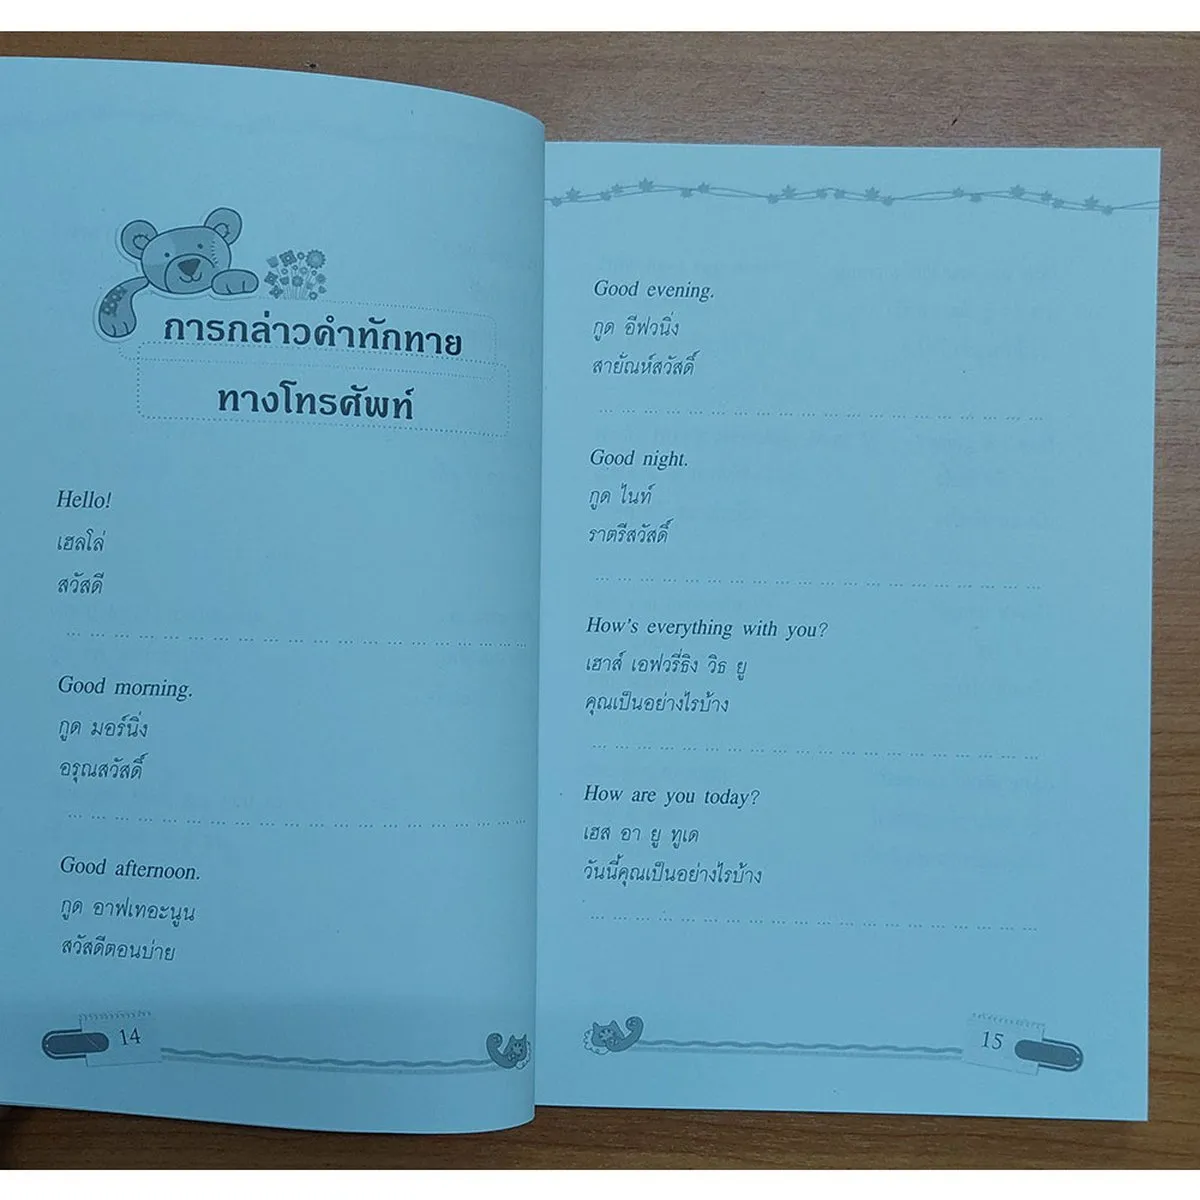 การกล่าวคำทักทาย
ทางโทรศัพท์
Hello!
เฮลโล่
สวัสดี
Good morning.
กูด มอร์นิ่ง
อรุณสวัสดิ์
Good afternoon.
กูด อาฟเทอะนูน
สวัสดีตอนบ่าย
14
Good evening.
กูด อีฟวนิ่ง
สายัณห์สวัสดิ์
Good night.
กูด ไนท์
ราตรีสวัสดิ์
How's everything with you?
เฮาส์ เอฟวรี่ธิง วิธ ยู
คุณเป็นอย่างไรบ้าง
How are you today?
เฮส อา ยู ทูเด
วันนี้คุณเป็นอย่างไรบ้าง
15